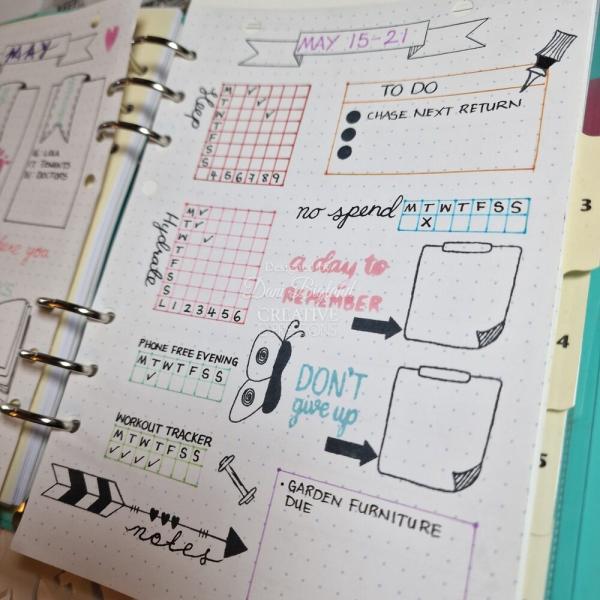 MAY
MAY 15-21
Sleep
M
T
W
T
F
S
S
4 5 6 7 8 9
TO DO
CHASE NEXT RETURN
no spend
M T W T F S S
X
Hydrate
M
T
W
T
F
S
S
L 1 2 3 4 5 6
a day to
REMEMBER
CREATIVE
PHONE FREE EVENING
M T W T F S S
DON'T
give up
WORKOUT TRACKER
M T W T F S S
notes
· GARDEN FURNITURE
DUE
TENANTS
DOCTORS
you
3
4
5